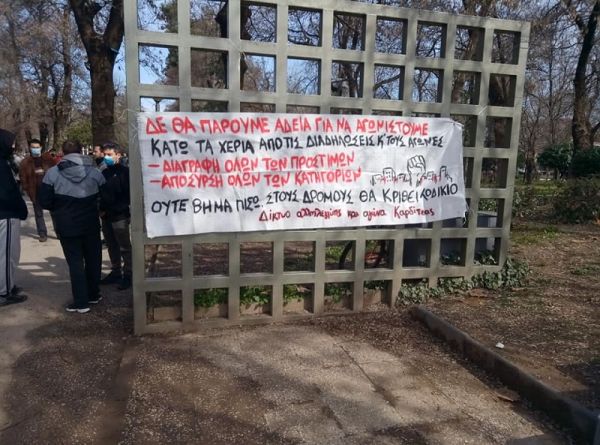 ΔΕ ΘΑ ΠΑΡΟΥΜΕ ΑΔΕΙΑ ΓΙΑ ΝΑ ΑΓΩΝΙΣΤΟΥΜΕ
ΚΑΤΩ ΤΑ ΧΕΡΙΑ ΑΠΟ ΤΙΣ ΔΙΑΔΗΛΩΣΕΙΣ Κ' ΤΟΥΣ ΑΓΩΝΕΣ
- ΔΙΑΓΡΑΦΗ ΟΛΩΝ ΤΩΝ ΠΡΟΣΤΙΜΩΝ
- ΑΠΟΣΥΡΣΗ ΟΛΩΝ ΤΩΝ ΚΑΤΗΓΟΡΙΩΝ
ΟΥΤΕ ΒΗΜΑ ΠΙΣΩ, ΣΤΟΥΣ ΔΡΟΜΟΥΣ ΘΑ ΚΡΙΘΕΙ ΤΟ ΔΙΚΙΟ
Δίκτυο αλληλεγγύης και αγώνα Καρδίτσας